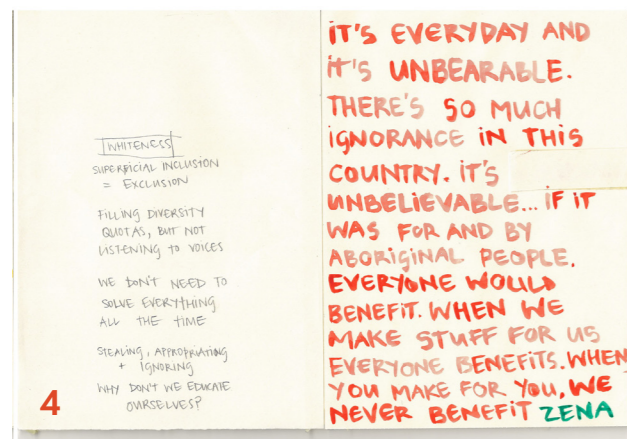 WHITENESS
SUPERFICIAL INCLUSION
= EXCLUSION
FILLING DIVERSITY
QUOTAS, BUT NOT
LISTENING TO VOICES
WE DON'T NEED TO
SOLVE EVERYTHING
ALL THE TIME
STEALING, APPROPRIATING
+ IGNORING
WHY DON'T WE EDUCATE
OURSELVES?
4
IT'S EVERYDAY AND
IT'S UNBEARABLE.
THERE'S SO MUCH
IGNORANCE IN THIS
COUNTRY. IT'S
UNBELIEVABLE... IF IT
WAS FOR AND BY
ABORIGINAL PEOPLE.
EVERYONE WOULD
BENEFIT. WHEN WE
MAKE STUFF FOR US
EVERYONE BENEFITS. WHEN
YOU MAKE FOR YOU, WE
NEVER BENEFIT ZENA